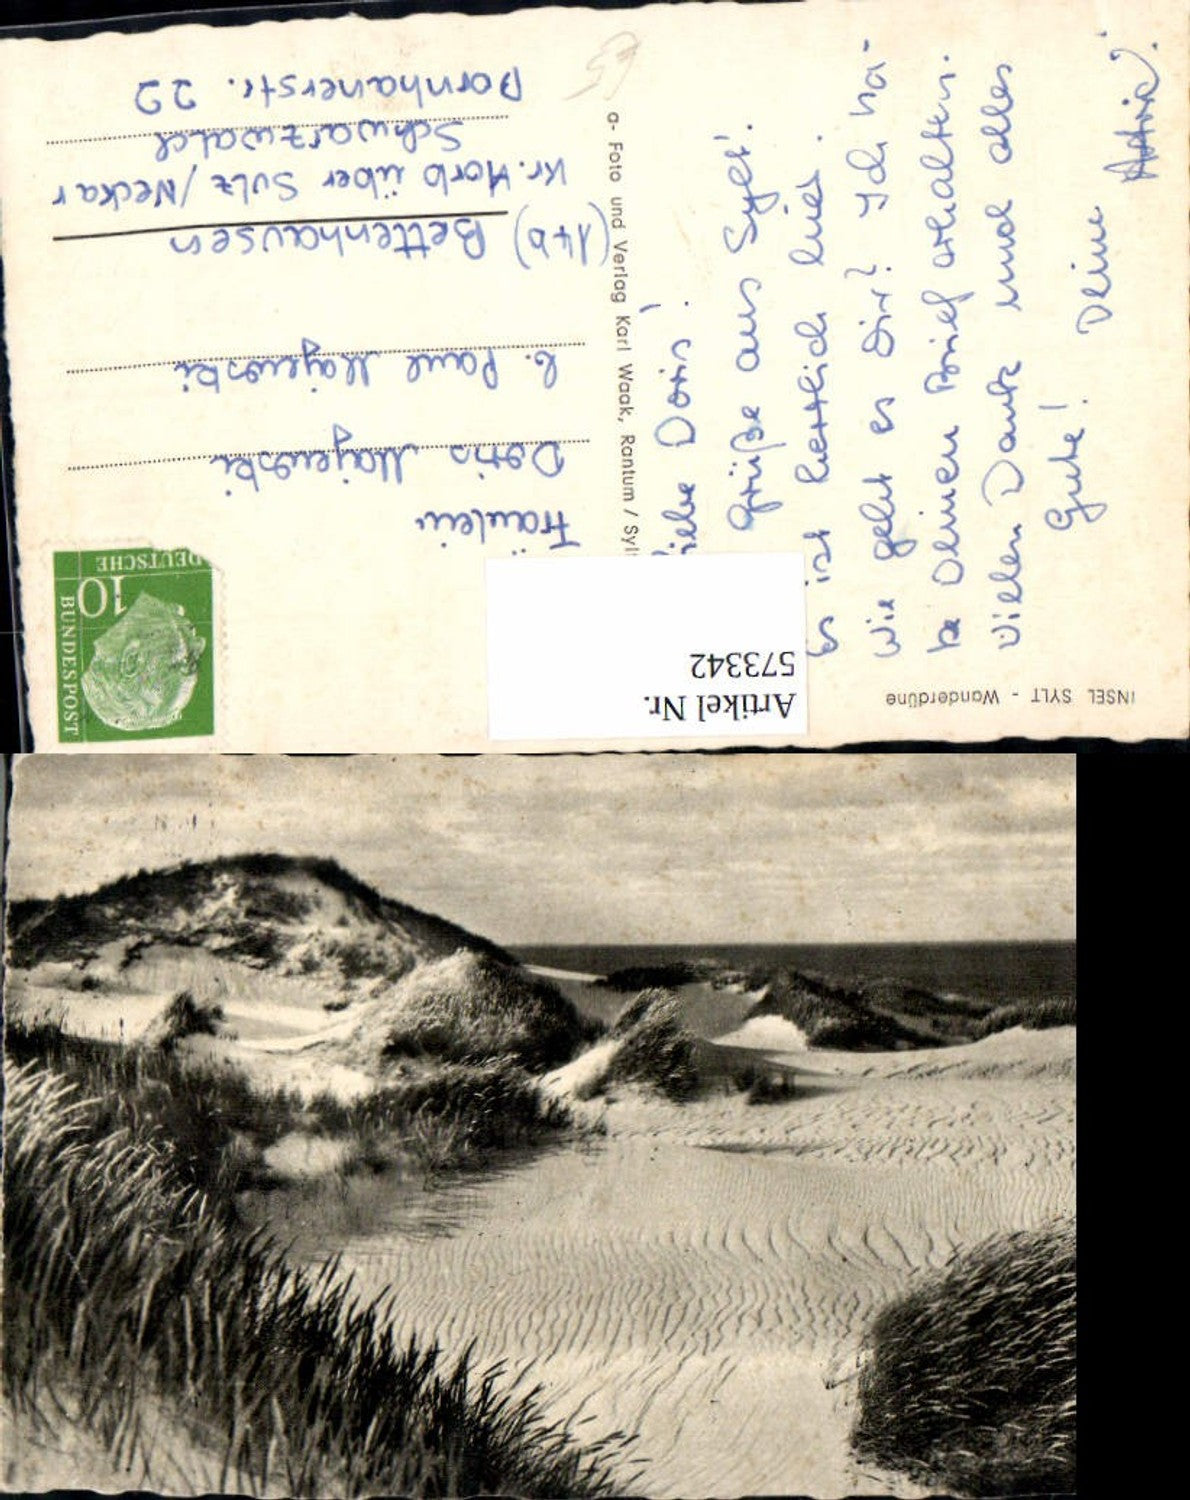 INSEL SYLT - Wanderdüne
Liebe Doris!
Grüße aus Sylt!
Es ist herrlich hier.
Wie geht es Dir? Ich ha-
be Deinen Brief erhalten.
Vielen Dank und alles
Gute! Deine
a- Foto und Verlag Karl Waak, Rantum / Sylt
59
DEUTSCHE
BUNDESPOST
10
Fräulein
Doris Majewski
b. Paul Majewski
(14b) Bettenhausen
Kr. Horb über Sulz/Neckar
Schwarzwald
Dornhanerstr. 22
Artikel Nr.
573342